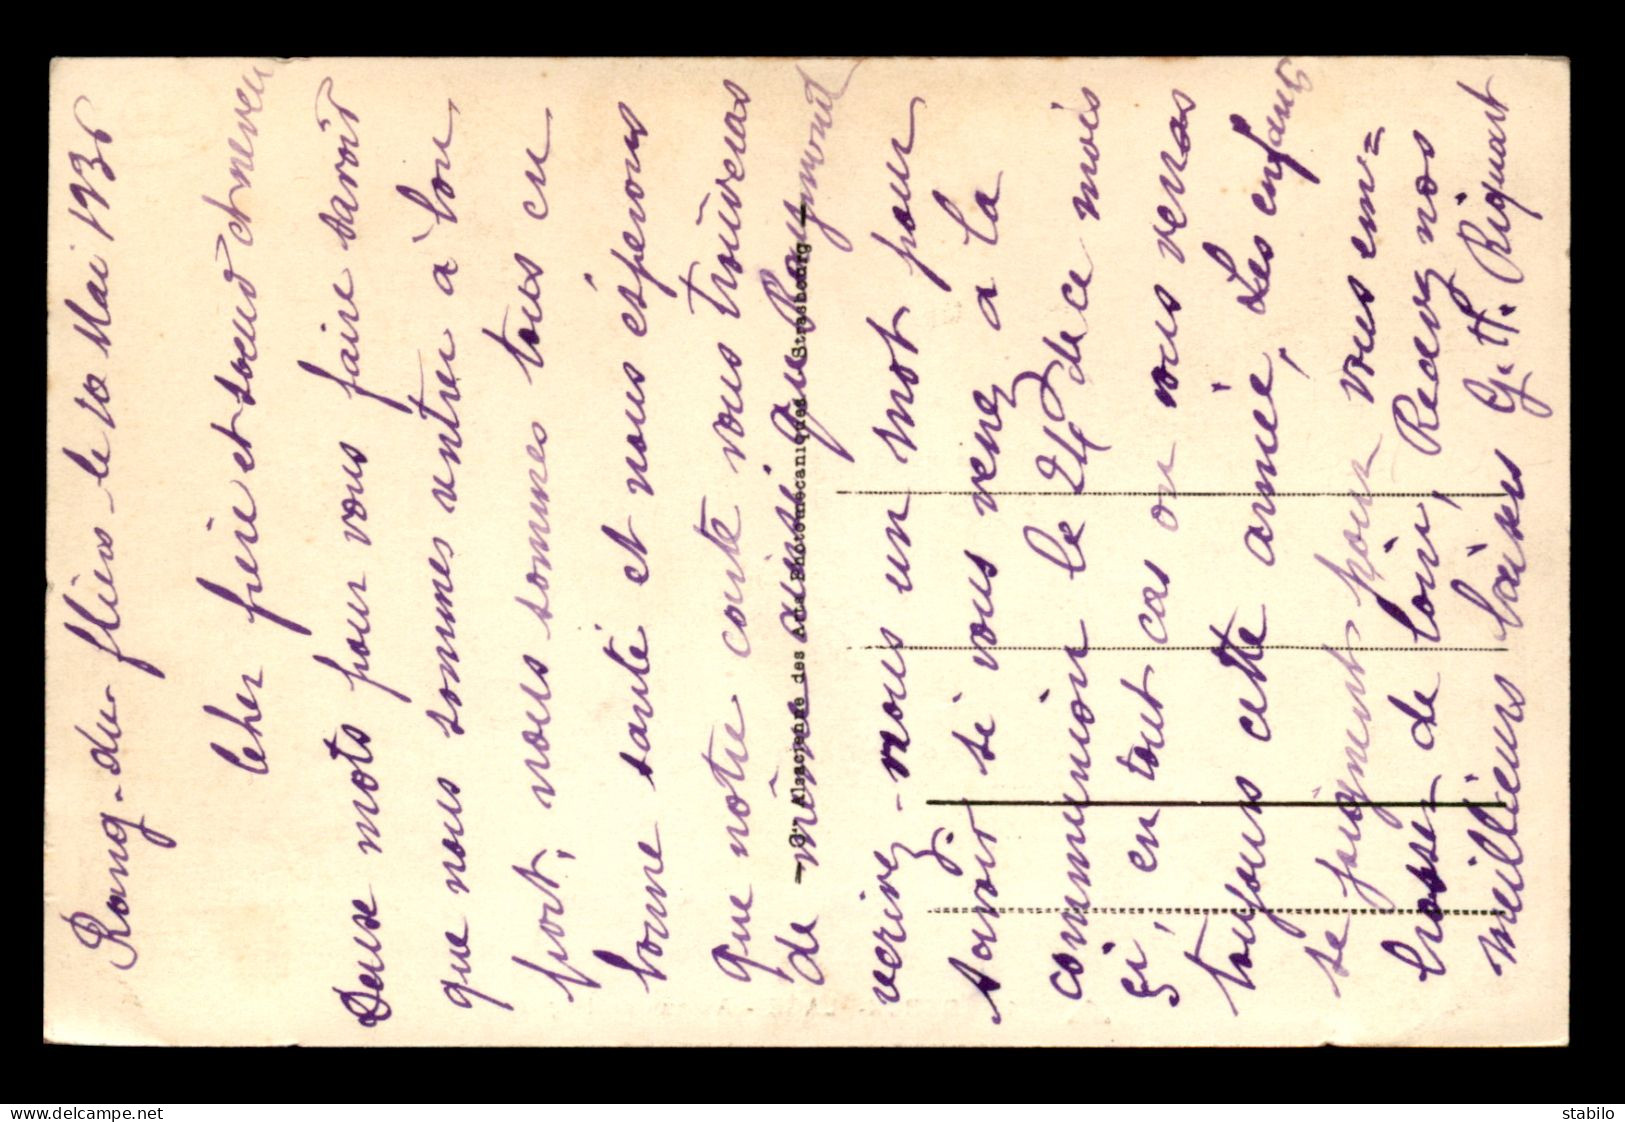 Rang-du fliers le 10 Mai 1936
Cher frère et soeur et neveu
Deux mots pour vous faire savoir
que nous sommes rentrer à bon
port, nous sommes tous en
bonne santé et nous éspérons
que notre carte vous trouveras
de même ainsi que Raymond
— Cie Alsacienne des Arts Photomécaniques, Strasbourg —
vecrivez-nous un mot pour
savoir si vous venez a la
communion le 24 de ce mois
çi, en tout cas on vous verras
toujours cette année, Les enfants
se joignent pour vous em=
brasser de loin, Recevez nos
meillieurs baisers G. H. Riquart
stabilo
delcampe.net